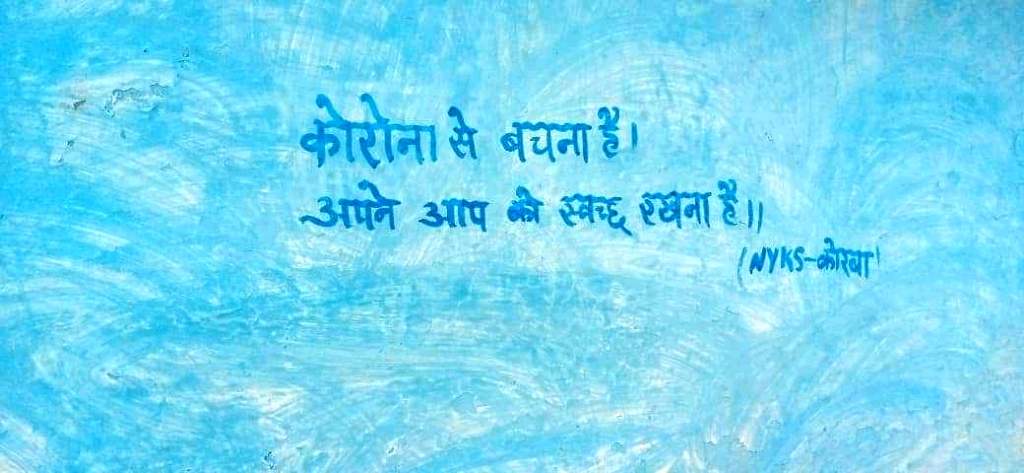 कोरोना से बचना है।
अपने आप को स्वच्छ रखना है।।
(NYKS-कोरबा)